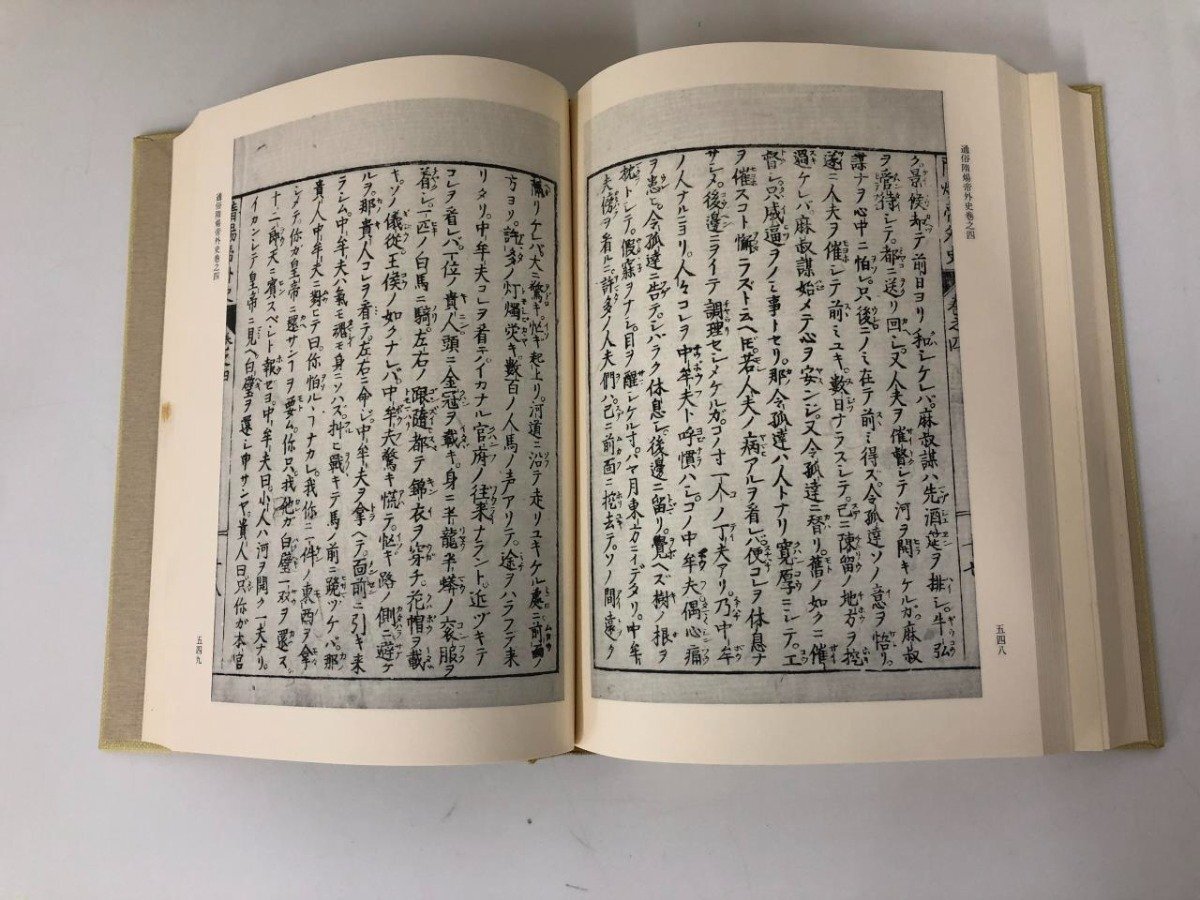 通俗隋煬帝外史巻之四
五四八
ク。景候却テ前日ヨリ和シケレバ。麻叔謀ハ先酒筵ヲ排シ。牛弘
ヲ管待シテ。都ニ送リ回シ。又人夫ヲ催督シテ河ヲ開キケルガ。麻叔
謀ナヲ心中ニ怕レ。只後ニノミ在テ前ミ得ズ。令孤達ソノ意ヲ悟リ。
遂ニ人夫ヲ催シテ前ミユキ。数日ナラズシテ。已ニ陳留ノ地方ヲ挖
過ケレバ。麻叔謀始メテ心ヲ安ンジ。又令孤達ニ替リ。舊ノ如クニ催
督シ。只威逼ヲノミ事トセリ。那令孤達ハ人トナリ寛厚ニシテ。工
ヲ催スコト懈ラズト云ヘドモ。若人夫ノ病アルヲ看レバ。便コレヲ休息ナ
サシメ。後邊ニヲイテ調理セシメケルガ。コノ寸一人ノ丁夫アリ。乃中牟
ノ人ナルニヨリ。人々コレヲ中牟夫ト呼慣ハシ。コノ中牟夫。偶心痛
ヲ患ヒ。令孤達ニ告テ。シバラク休息シ。後邊ニ留リ。覺ヘズ樹ノ根ヲ
枕トシテ。假寐ヲナシ。目ヲ醒シケル寸。ハヤ月東方ニイデタリ。中牟
夫傍ヲ看ルニ。許多ノ人夫們ハ。已ニ前面ニ挖去テ。ソノ間遠ク
離リナレバ。大ニ驚キ。忙キ起上リ。河道ニ沿テ走リユキケル處ニ。前面ノ
方ヨリ。許多ノ灯燭熒キ。數百ノ人馬ノ声アリテ。途ヲハラフテ来
リタリ。中牟夫コレヲ看テ。イカナル官府ノ往来ナラント。近ヅキテ
コレヲ看レバ。一位ノ貴人。頭ニ金冠ヲ戴キ。身ニ半龍半蟒ノ衮服ヲ
着シ。一匹ノ白馬ニ騎。左右ノ跟隨都テ錦衣ヲ穿チ。花帽ヲ戴
キ。ソノ儀從王侯ノ如クナレバ。中牟夫驚キ慌テ。忙キ路ノ側ニ避ケ
ルヲ。那貴人コレヲ看テ。左右ニ命シ。中牟夫ヲ拿ヘテ。面前ニ引キ来
ラシム。中牟夫ハ氣モ魂モ身ニソハズ。抖ヒ戰キテ馬ノ前ニ跪ヅケバ。那
貴人中牟夫ニ對ヒテ曰你怕ルヽコナカレ。我你ニ一件ノ東西ヲ拿
シメテ。你カ皇帝ニ還サンコヲ要ム。你只。我他カ白璧一双ヲ還ス。
十二郎天ニ賓スベシト報セヨ。中牟夫曰小人ハ河ヲ開ク一夫ナリ。
イカンシテ皇帝ニ見ヘ。白璧ヲ還シ申サンヤ。貴人曰只你ガ本官
通俗隋煬帝外史巻之四
五四九